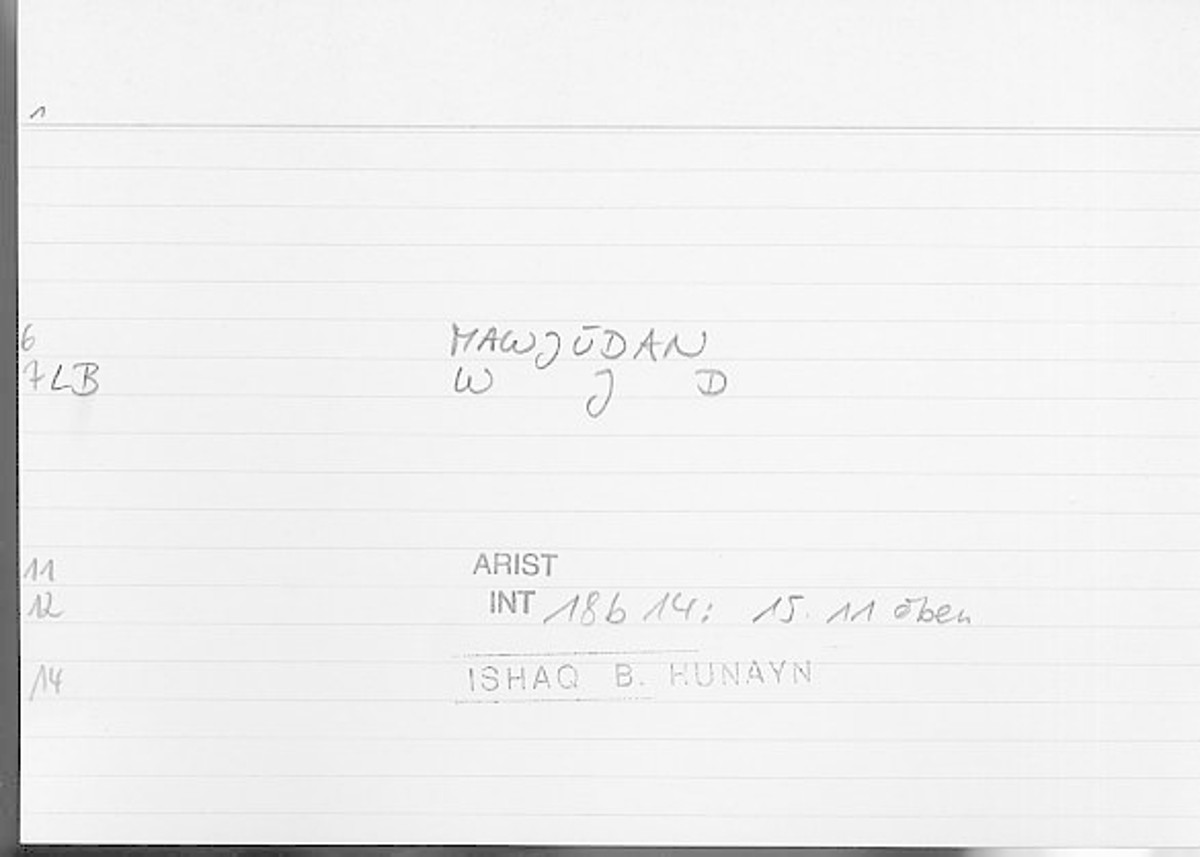 1
6 MAWJŪDAN
7 LB W J D
11 ARIST
12 INT 18b 14: 15.11 oben
14 ISHAQ B. HUNAYN